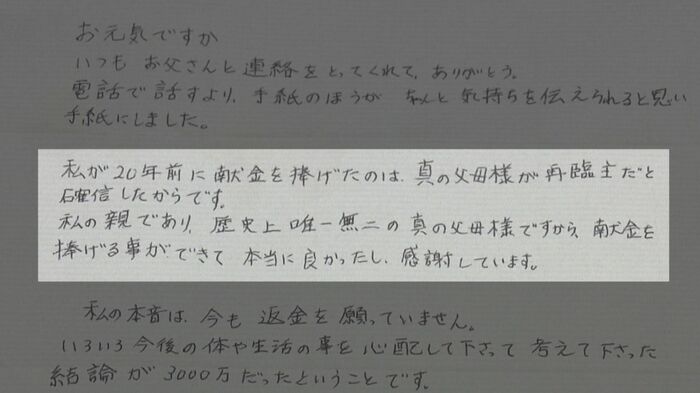 お元気ですか
いつも お父さんと連絡をとってくれて、ありがとう。
電話で話すより、手紙のほうが ちゃんと気持ちを伝えられると思い
手紙にしました。
私が20年前に献金を捧げたのは、真の父母様が再臨主だと
確信したからです。
私の親であり、歴史上唯一無二の真の父母様ですから、献金を
捧げる事ができて 本当に良かったし、感謝しています。
私の本音は、今も 返金を願っていません。
いろいろ今後の体や生活の事を心配して下さって 考えて下さった
結論が3000万だったということです。